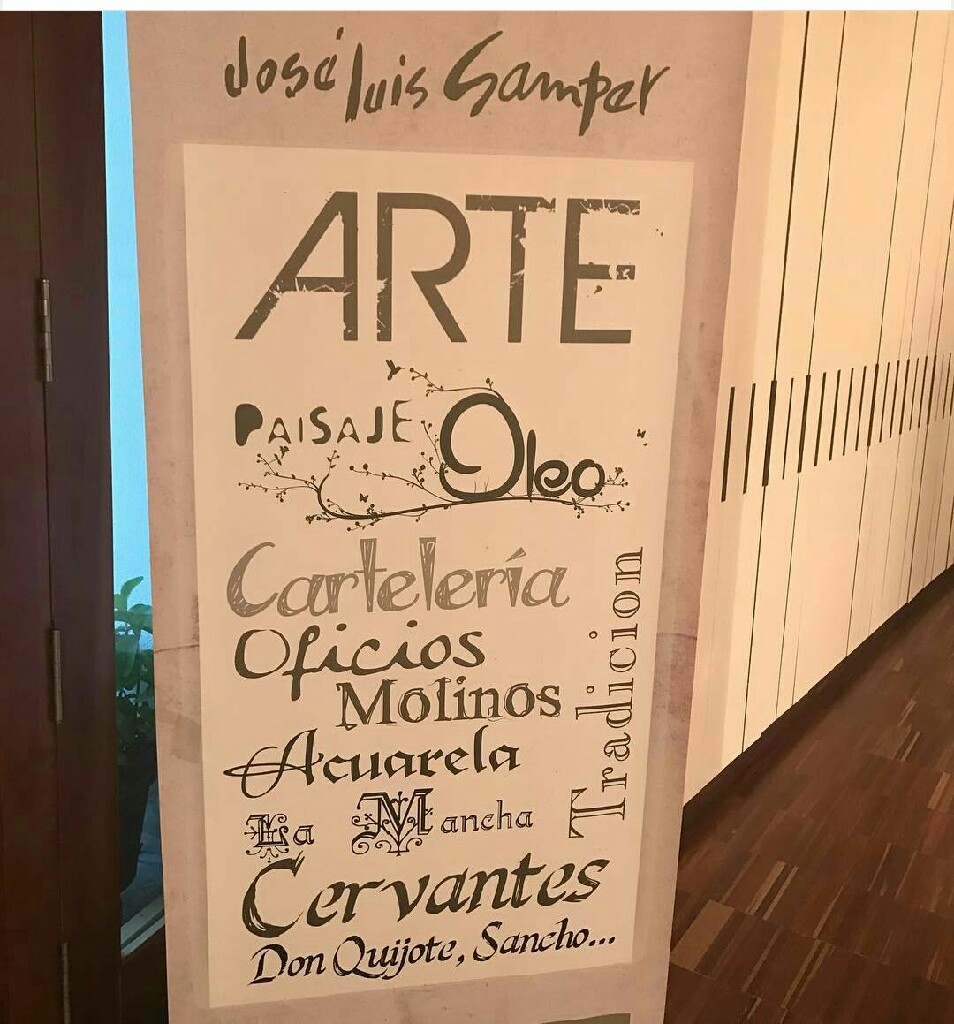 José Luis Samper
ARTE
PAISAJE Oleo
Cartelería
Oficios
Molinos
Acuarela
La Mancha
Tradicion
Cervantes
Don Quijote, Sancho...